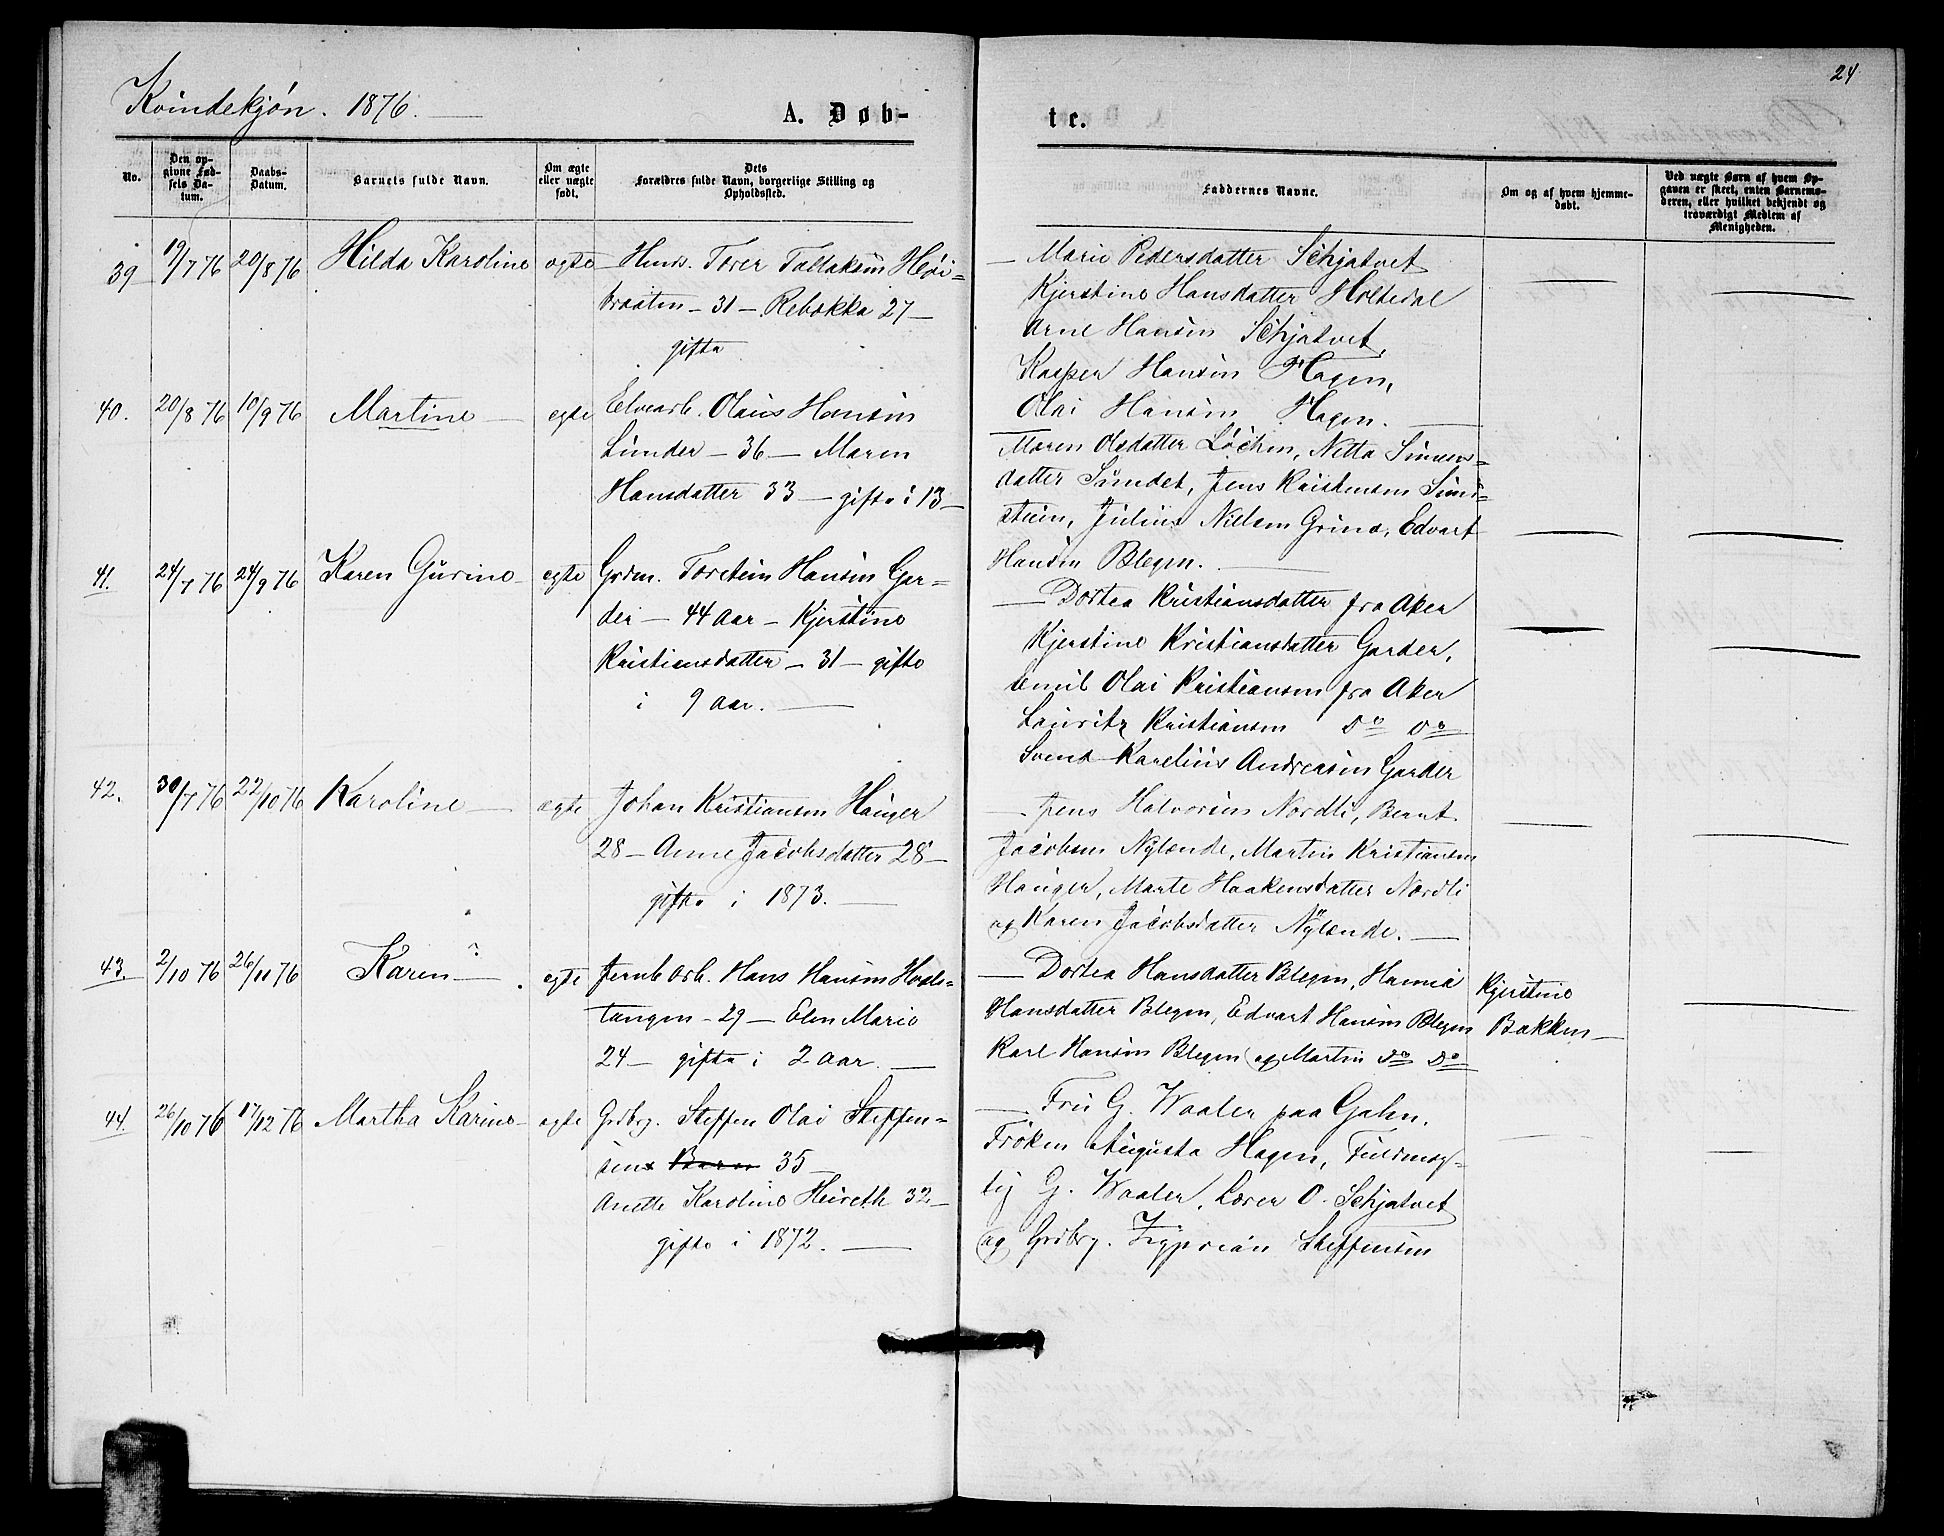 24
Kvindekjøn. 1876.
A. Døb-
te.
No.
Den op-
givne Fød-
sels Da-
tum.
Daabs-
Datum.
Barnets fulde Navn.
Om ægte
eller uægte
født.
Dets
Forældres fulde Navn, borgerlige Stilling og
Opholdssted.
Faddernes Navne.
Om og af hvem hjemme-
døbt.
Ved uægte Børn af hvem Op-
gaven er skeet, enten Barnemo-
deren, eller hvilket bekjendt og
troværdigt Medlem af
Menigheden.
39 19/7 76 20/8 76 Hilda Karoline ægte Huus. Torer Tallaksen Høi-
braaten - 31 - Rebekka 27 -
gifte
Marie Pedersdatter Schjatvet
Kjerstine Hansdatter Holtedal
Arne Hansen Schjatvet,
Kasper Hansen Hagen,
Olai Hansen Hagen.
40. 20/8 76 10/9 76 Martine - ægte Elvearb. Olaus Hansen
Sunder - 36 - Maren
Hansdatter 33 - gifte i 13 -
Maren Olsdatter Løchen, Netta Simens-
datter Sundet, Jens Kristensen Sund-
stuen, Julius Nielsen Grina, Edvart
Hansen Blegen.
41. 24/7 76 24/9 76 Karen Gurine - ægte Grdm. Torstein Hansen Gar-
der - 44 Aar - Kjerstine
Kristiansdatter - 31 - gifte
i 9 Aar.
Dortea Kristiansdatter fra Aker
Kjerstine Kristiansdatter Garder,
Emil Olai Kristiansen fra Aker
Lauritz Kristiansen Do Do
Svend Karelius Andreasen Garder
42. 30/7 76 22/10 76 Karoline - ægte Johan Kristiansen Hauger
28 - Anne Jacobsdatter 28 -
gifte i 1873.
Jens Halvorsen Nordli, Bernt
Jacobsen Nylænde, Martin Kristiansen
Hauger, Marte Haakensdatter Nordli
og Karen Jacobsdatter Nylænde.
43. 2/10 76 26/11 76 Karen - ægte Jernb Arb. Hans Hansen Hasle-
tangen - 29 - Elen Marie
24 - gifte i 2 Aar.
Dortea Hansdatter Blegen, Hanna
Hansdatter Blegen, Edvart Hansen Blegen
Karl Hansen Blegen og Martin Do Do
Kjerstine
Bakken -
44. 26/10 76 17/12 76 Martha Karine - ægte Grdbrg. Steffen Olai Steffen-
sen 35 -
Anette Karoline Heireth 32 -
gifte i 1872.
Fru G. Waaler paa Galen.
Frøken Augusta Hagen, Fuldmæg-
tig G. Waaler, Lærer O. Schjatvet
og Grdbrg. Zyprian Steffensen